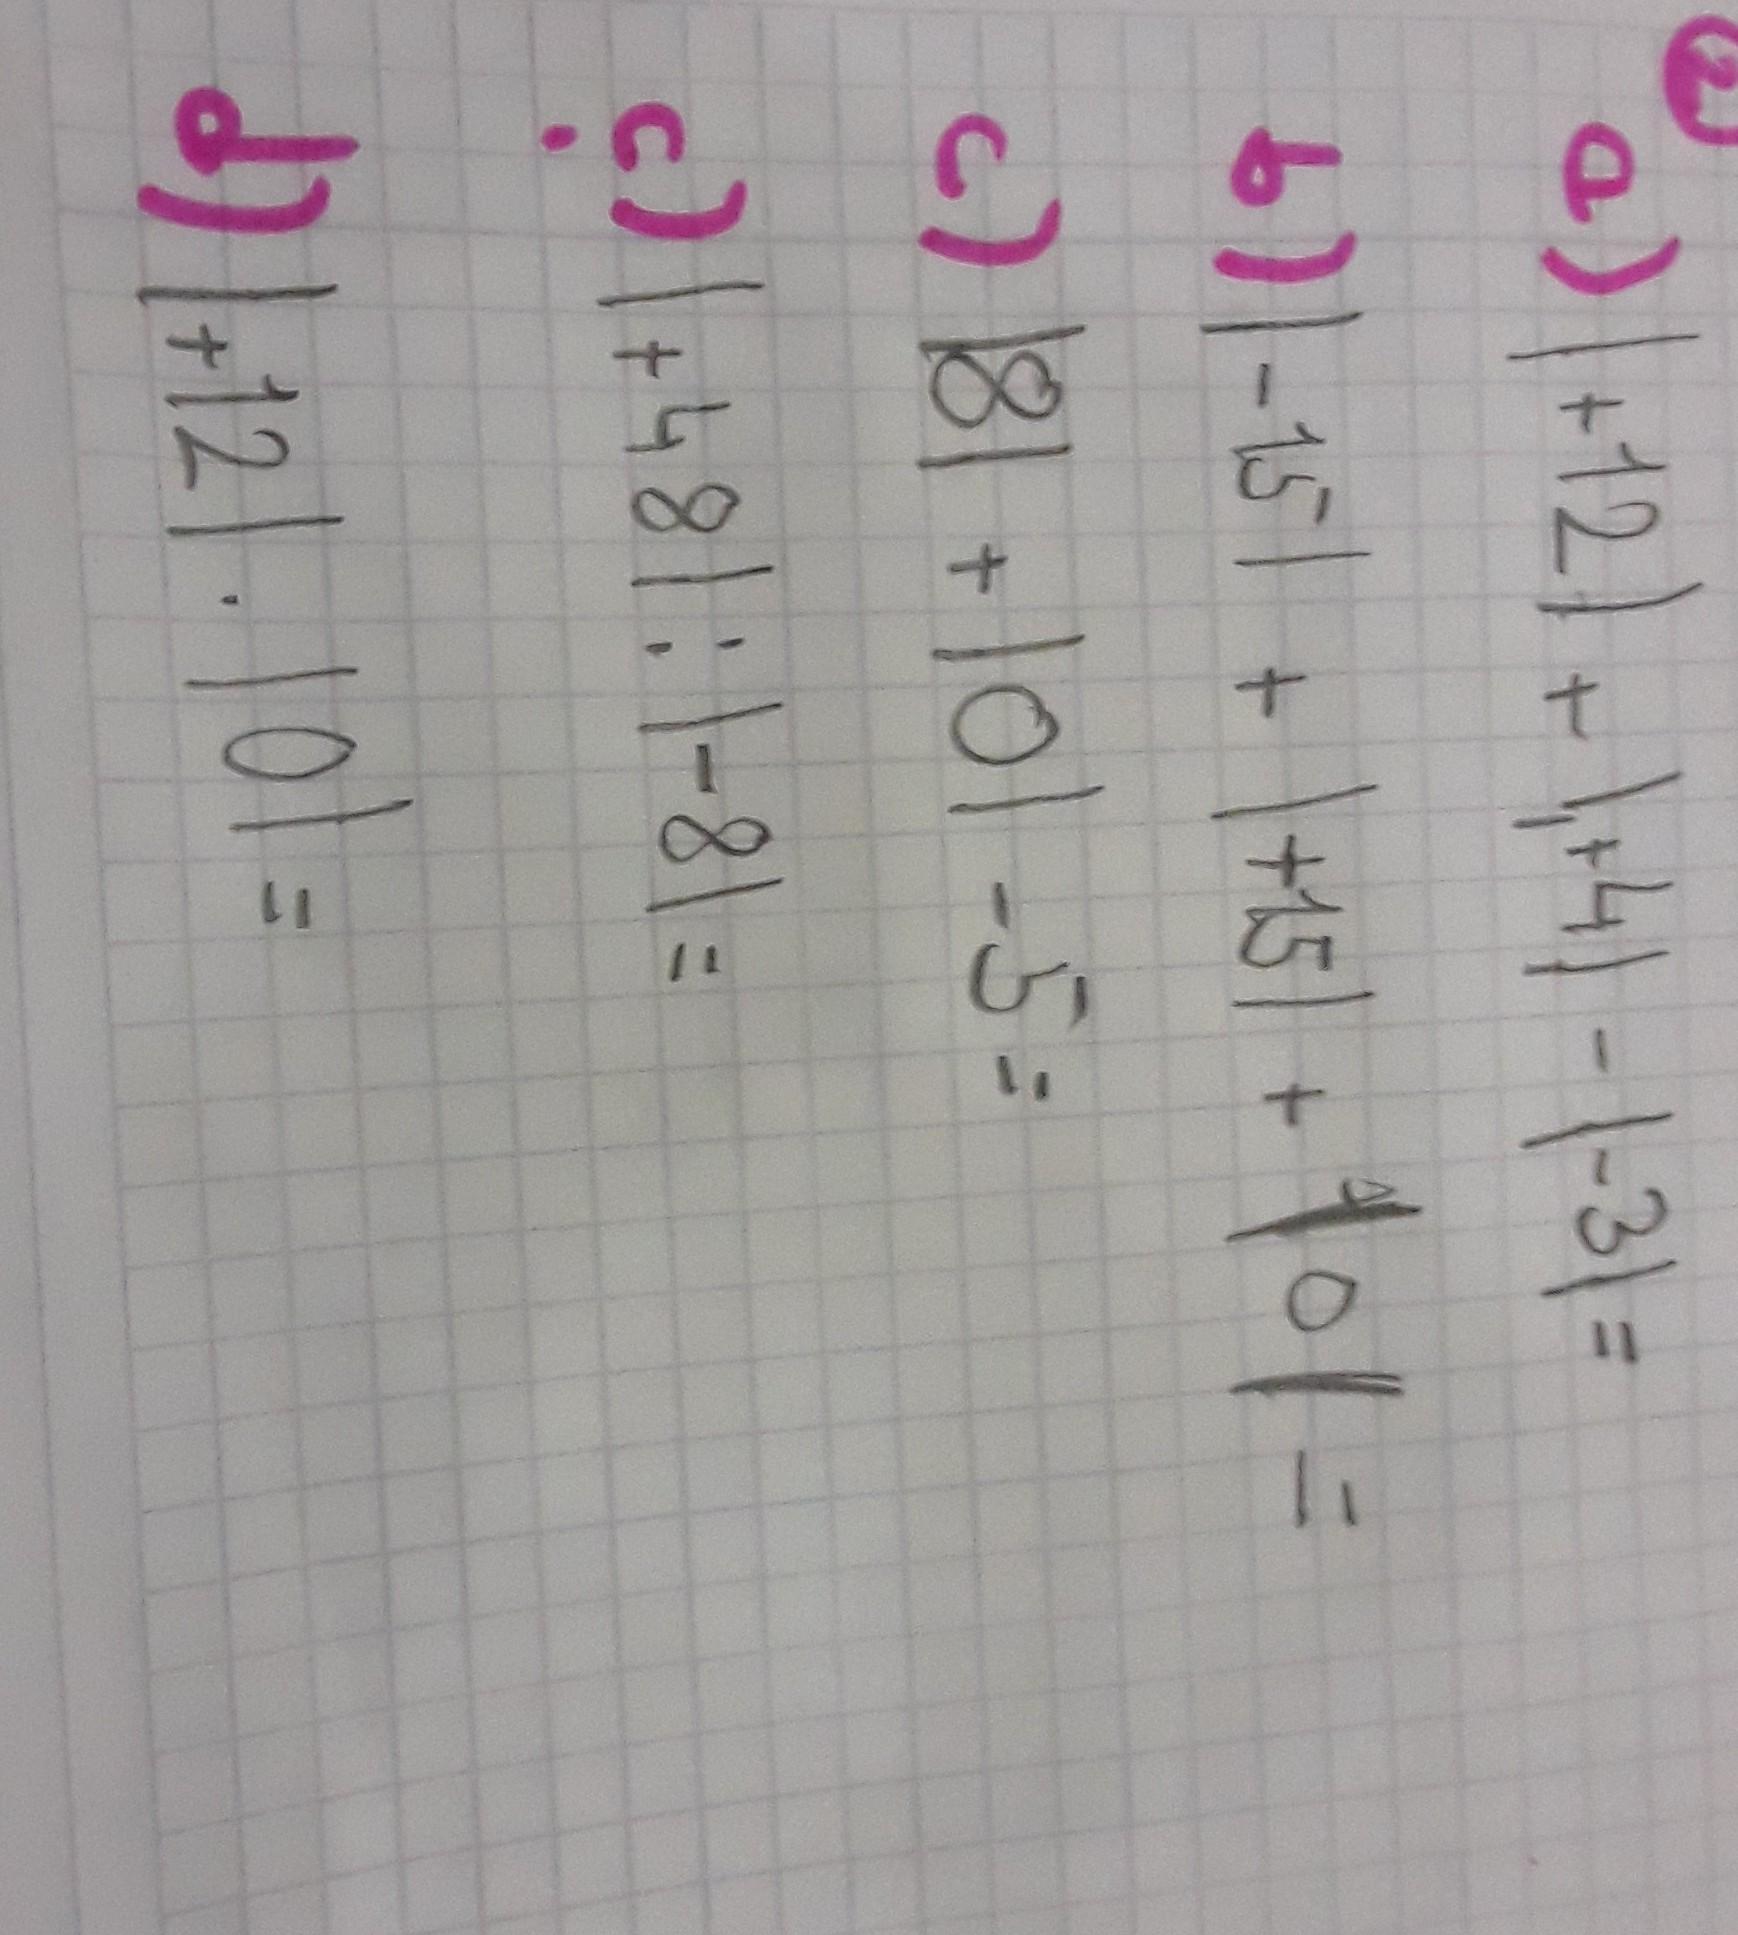 2
a) |+12| + |+4| - |-3| =
b) |-15| + |+15| + |0| =
c) |8| + |0| -5 =
ç) |+48| : |-8| =
d) |+12| · |0| =